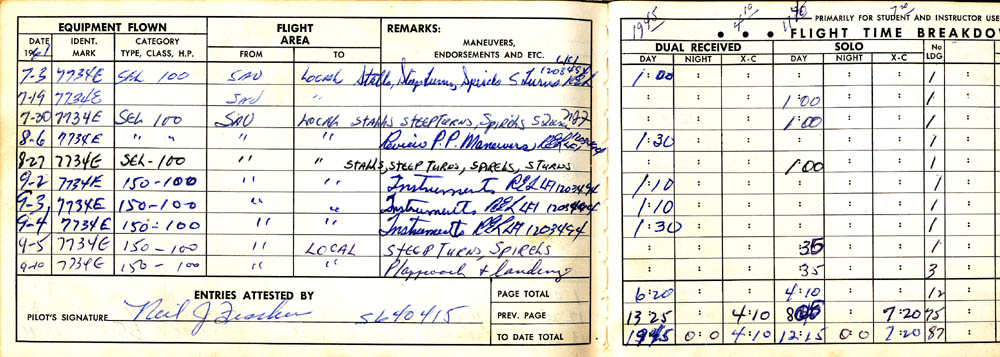 EQUIPMENT FLOWN FLIGHT AREA REMARKS:
DATE 1961 IDENT. MARK CATEGORY TYPE, CLASS, H.P. FROM TO MANEUVERS, ENDORSEMENTS AND ETC.
7-3 7734E SEL 100 SAU LOCAL Stalls, Steepturns, Spirals S Turns 1203494
7-19 7734E SAU "
7-20 7734E SEL 100 SAU LOCAL STALLS STEEPTURNS, SPIRELS
8-6 7734E " " " " Review P.P. Maneuvers
8-27 7734E SEL-100 " " STALLS, STEEP TURNS, SPIRELS, STURNS
9-2 7734E 150-100 " " Instruments 1203494
9-3 7734E 150-100 " " Instruments 1203494
9-4 7734E 150-100 " " Instruments 1203494
9-5 7734E 150-100 " LOCAL STEEP TURNS, SPIRELS
9-10 7734E 150-100 " " approach + landing
ENTRIES ATTESTED BY
PILOT'S SIGNATURE Neil J 5640415
PAGE TOTAL
PREV. PAGE
TO DATE TOTAL
1945 4:10 11:40 7:20
PRIMARILY FOR STUDENT AND INSTRUCTOR USE
FLIGHT TIME BREAKDO
DUAL RECEIVED SOLO No LDG
DAY NIGHT X-C DAY NIGHT X-C
1:00 1
1:00 1
1:00 1
1:30 1
1:00 1
1:10 1
1:10 1
1:30 1
:35 1
:35 3
6:20 4:10 12
13:25 4:10 7:20 75
1945 0:0 4:10 12:15 0:0 7:20 87